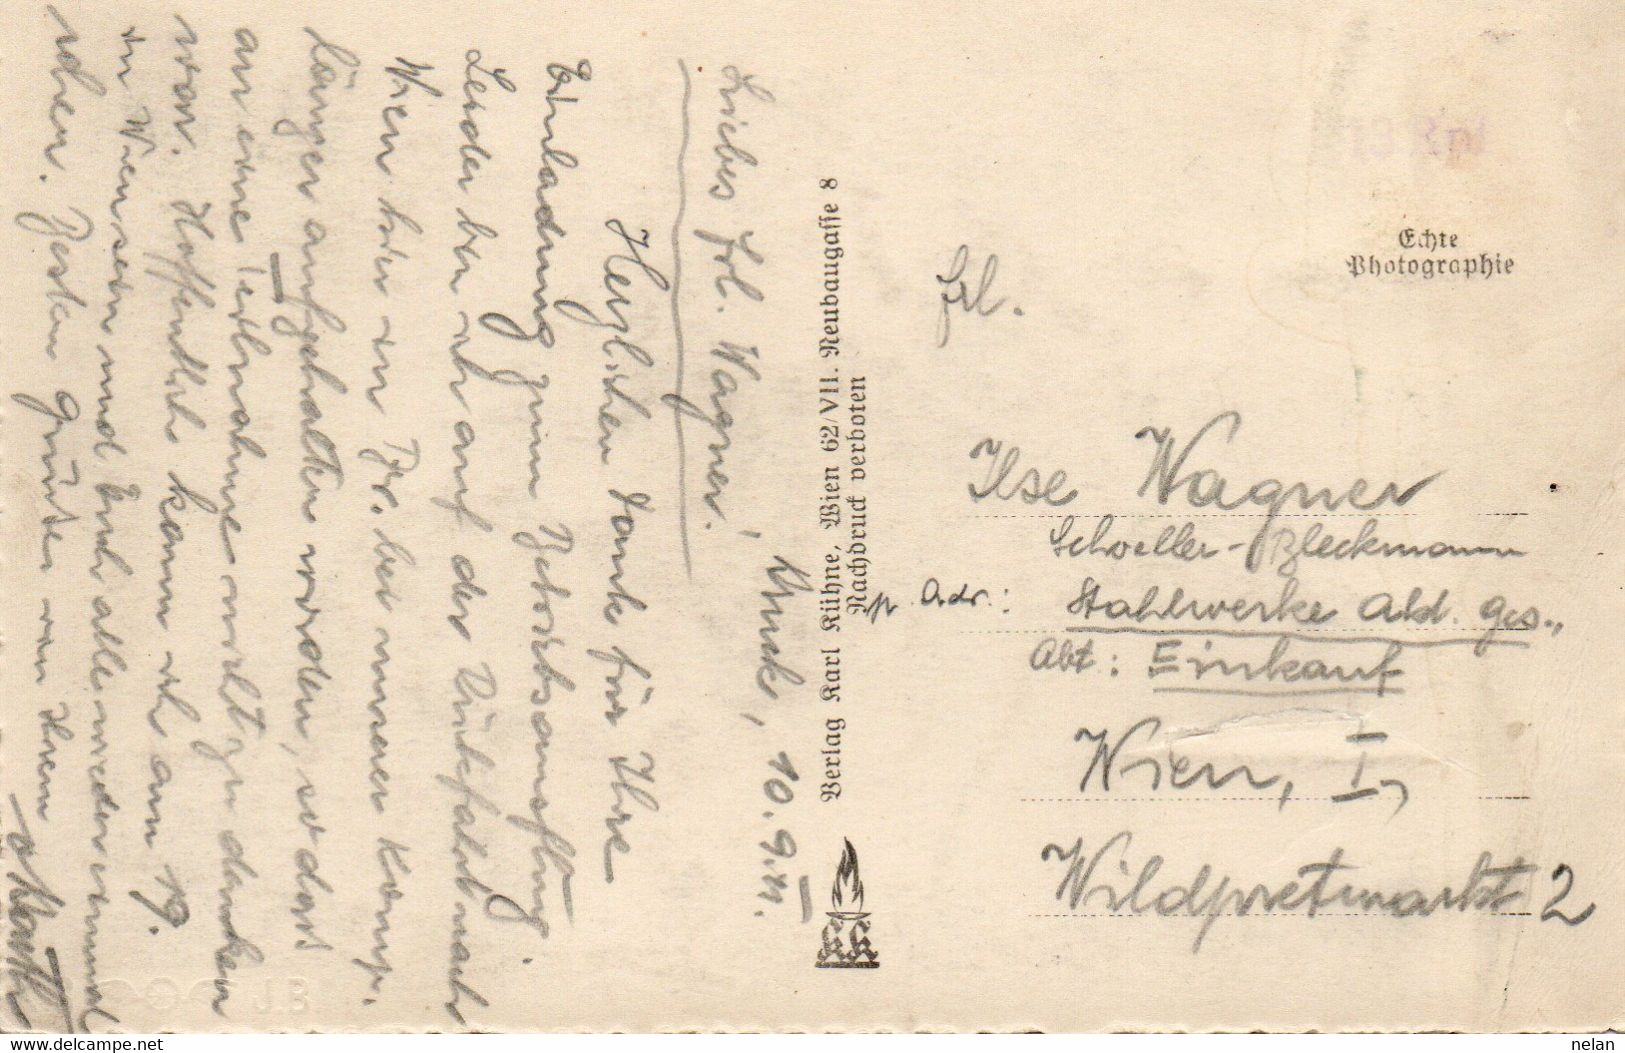 Bruck, 10.9.VI.
Liebes Frl. Wagner.
Herzlichen Dank für Ihre
Einladung zum Betriebsausflug.
Leider bin ich auf der Rückfahrt nach
Wien hier in Br. bei unserer Komp.
länger aufgehalten worden, so dass
an eine Teilnahme nicht zu denken
war. Hoffentlich kann ich am 19.
in Wien sein und Euch alle wieder einmal
sehen. Besten Grüßen von Ihrem
Verlag Karl Kühne, Wien 62/VII. Neubaugasse 8
Nachdruck verboten
KK
Echte
Photographie
Frl.
Ilse Wagner
Schoeller-Bleckmann
Adr.: Stahlwerke Akt. Ges.,
Abt: Einkauf
Wien, I,
Wildpretmarkt 2
JB
www.delcampe.net
nelan